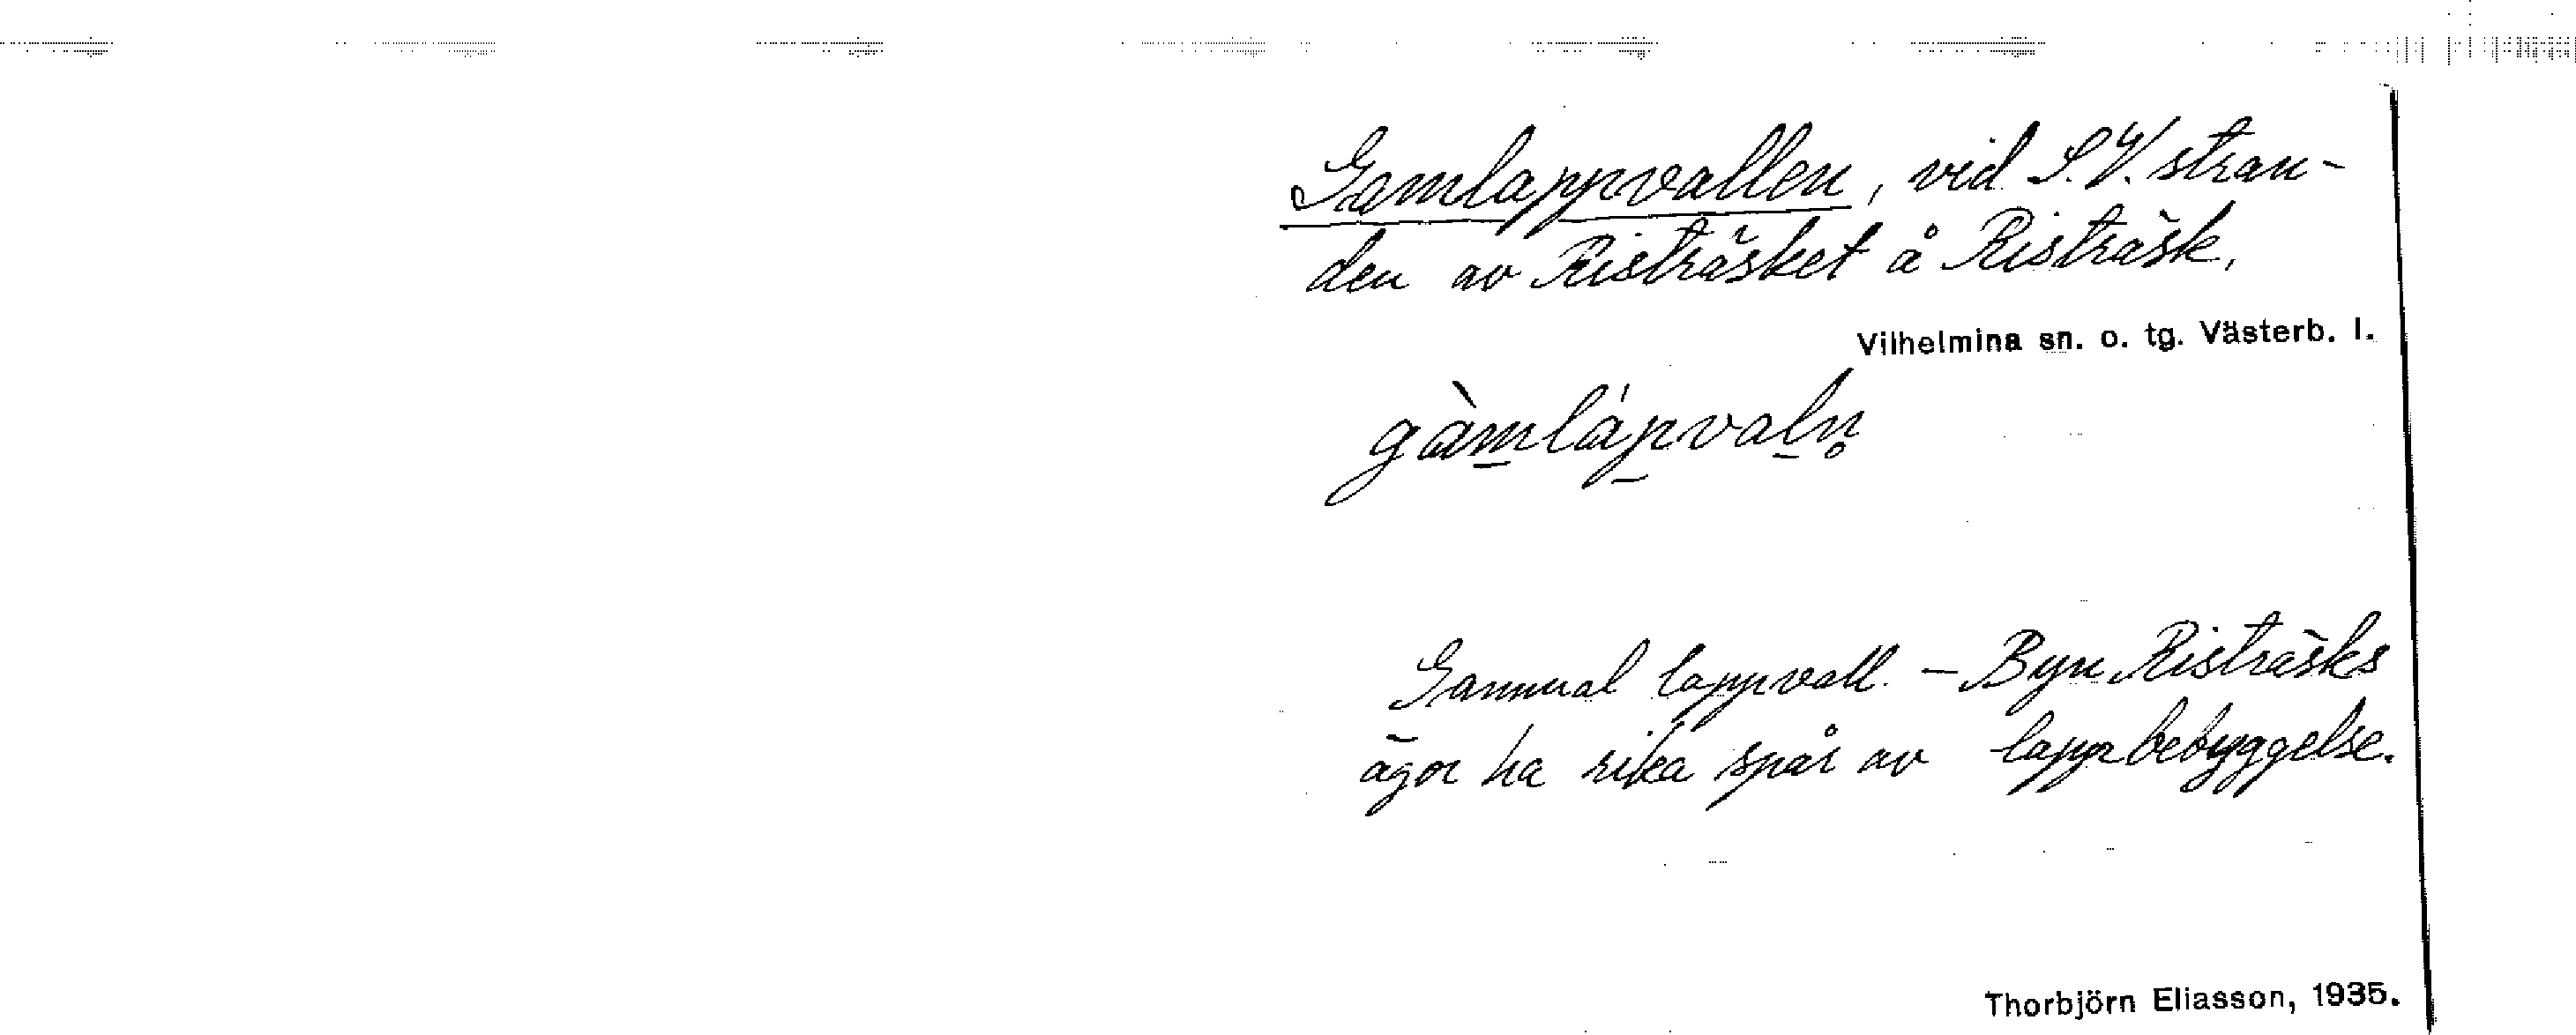 Gamlappvallen, vid S.V. stran-
den av Risträsket å Risträsk.
Vilhelmina sn. o. tg. Västerb. l.
gàm̲láp̲val̲n̥
Gammal lappvall. – Byn Risträsks
ägor ha rika spår av lappbebyggelse.
Thorbjörn Eliasson, 1935.